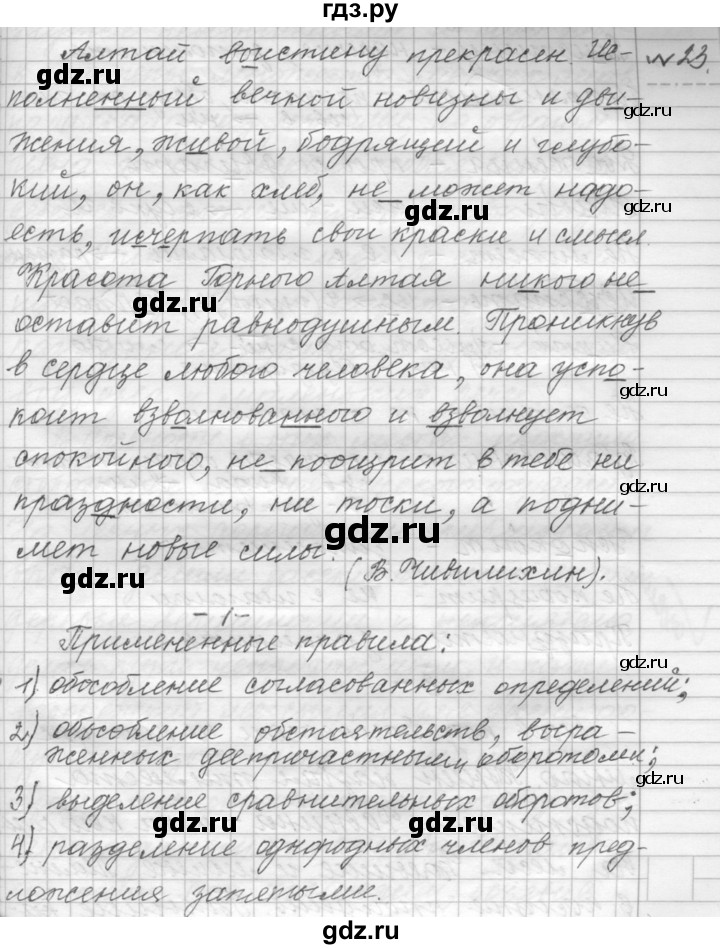 гдз.ру
Алтай воистину прекрасен. Ис- №23.
gdz.ru
полненный вечной новизны и дви-
gdz.ru
жения, живой, бодрящий и глубо-
кий, он, как хлеб, не может надо-
gdz.ru
gdz.ru
есть, исчерпать свои краски и смысл.
Красота Горного Алтая никого не
gdz.ru
gdz.ru
оставит равнодушным. Проникнув
в сердце любого человека, она успо-
gdz.ru
коит взволнованного и взволнует
спокойного, не поощрит в тебе ни
gdz.ru
праздности, ни тоски, а подни-
gdz.ru
мет новые силы.
gdz.ru
(В. Чивилихин).
-1-
Применённые правила:
gdz.ru
1) обособление согласованных определений;
2) обособление обстоятельств, выра-
женных деепричастными оборотами;
gdz.ru
3) выделение сравнительных оборотов;
gdz.ru
gdz.ru
4) разделение однородных членов пред-
ложения запятыми.
gdz.ru